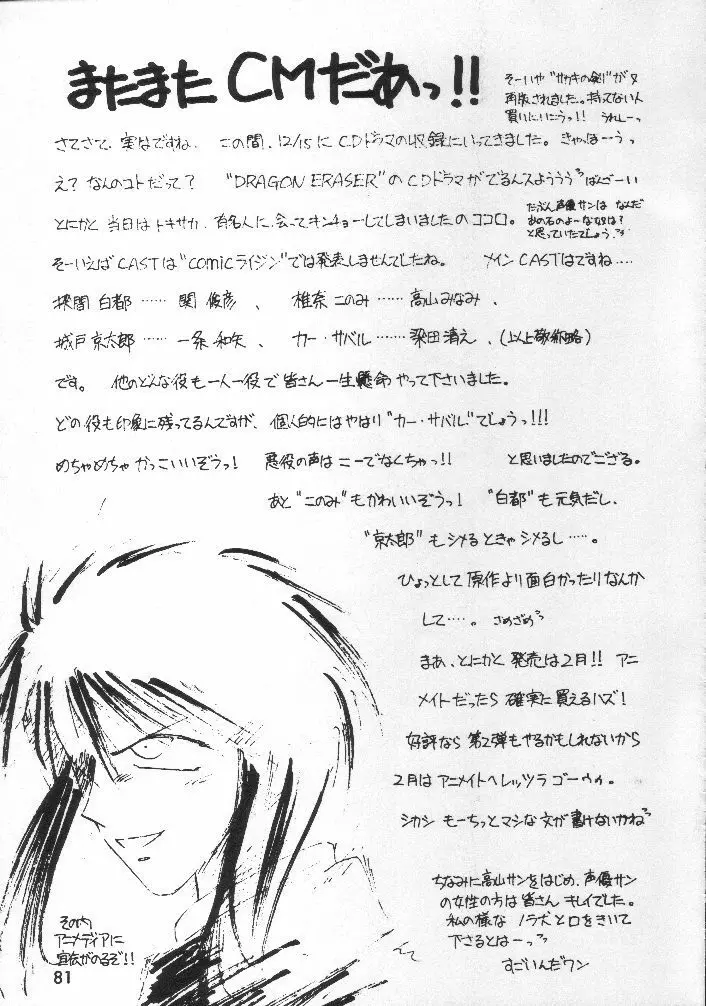 またまたCMだあっ!!
そーいや"サカキの剣"が又
再版されました。持ってない人
買いにいこうっ!! うれしーっ
さてさて、実はですね、 この間、12/15にCDドラマの収録にいってきました。きゃっほーうっ
え? なんのコトだって? "DRAGON ERASER"のCDドラマがでるんスようううばんざーい
とにかく当日はトキサカ、有名人に会ってキンチョーしてしまいましたのココロ。
たぶん声優サンは なんだ
あの石のよーな奴は?
と思っていたでしょう、
そーいえばCASTは"comicライジン"では発表しませんでしたね。 メインCASTはですね‥‥
探間 白都‥‥‥ 関 俊彦、 椎奈このみ‥‥‥高山みなみ、
城戸京太郎‥‥‥ 一条和矢、 カー・サバル‥‥‥梁田清え、(以上敬称略)
です。 他のどんな役も一人一役で皆さん一生懸命やって下さいました。
どの役も印象に残ってるんですが、個人的にはやはり"カー・サバル"でしょうっ!!!
めちゃめちゃかっこいいぞうっ! 悪役の声はこーでなくちゃっ!! と思いましたのでござる。
あと"このみ"もかわいいぞうっ! "白都"も元気だし、
"京太郎"もシメるときゃシメるし‥‥。
ひょっとして原作より面白かったりなんか
して‥‥。 さめざめ
まあ、とにかく発売は2月!! アニ
メイトだったら確実に買えるハズ!
好評なら第2弾もやるかもしれないから
2月はアニメイトへレッツラゴーゥゥ。
シカシもーちっとマシな文が書けないかね
ちなみに高山サンをはじめ、声優サン
の女性の方は皆さんキレイでした。
私の様なノラ犬と口をきいて
下さるとはーっ
すごいんだワン
その内
アニメディアに
宣伝がのるぞ!!
81